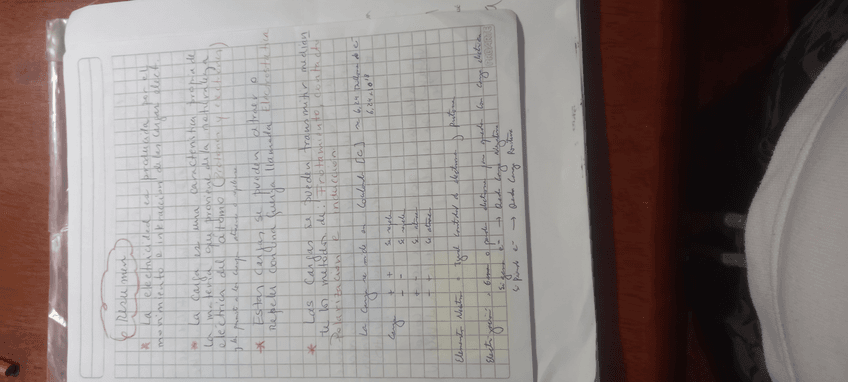 Resumen
* La electricidad es producida por el
movimiento e interacción de las cargas eléct.
* La carga es una característica propia de
la materia que proviene de la naturaleza
eléctrica del átomo (protones y electrones)
* Estas cargas se pueden atraer o
repeler con una fuerza llamada Electrostática
* Las Cargas se pueden transmitir median
te los metodos de: Frotamiento, contacto
Polarización e inducción
La Carga se mide en Coulomb [C]
Carga + + Se repelen
- - Se repelen
+ - Se atraen
- + Se atraen
Elemento Neutro = Igual cantidad de electrones y protones
Si gana e⁻ → Queda Carga Negativa
Si Pierde e⁻ → Queda Carga Positiva